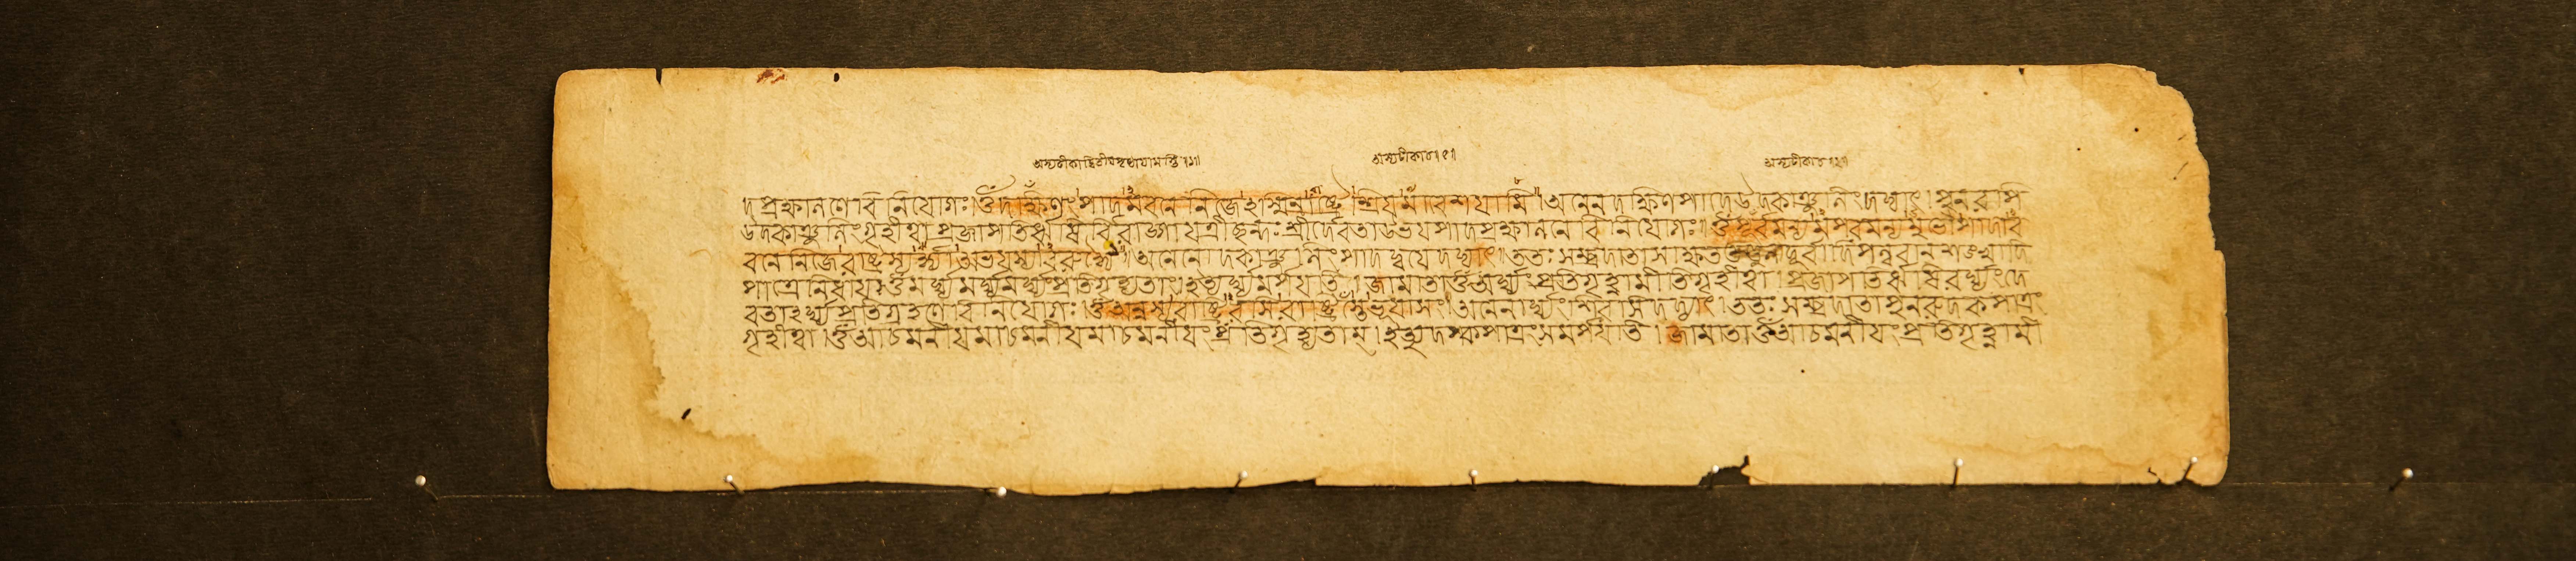 দপ্রক্ষালনেবিনিযোগঃ।ওঁদক্ষিণংপাদমবনেনিজেহস্মিন্রাষ্ট্রেশ্রিযমাবেশযামি।অনেনদক্ষিণপাদেউদকাঞ্জলিংদদ্যাৎ।পুনরপি
উদকাঞ্জলিংগৃহীত্বাপ্রজাপতিরৃষির্বিরাড্গাযত্রীছন্দঃশ্রীর্দেবতাউভযপাদপ্রক্ষালনেবিনিযোগঃ।ওঁপূর্বমন্যমপরমন্যমুভৌপাদাব
বনেনিজেরাষ্ট্রস্যর্দ্ধ্যাঅভযস্যাবরুদ্ধ্যৈ॥অনেনোদকাঞ্জলিংপাদদ্বযেদদ্যাৎ॥ততঃসম্প্রদাতাসাক্ষততণ্ডুলদূর্বাদিপল্লবান্শঙ্খাদি
পাত্রেনিধায।ওঁঅর্ঘ্যমর্ঘ্যমর্ঘ্যংপ্রতিগৃহ্যতাং।ইত্যর্ঘ্যমর্পযতি।জামাতাওঁঅর্ঘ্যংপ্রতিগৃহ্ণামীতিগৃহীত্বা।প্রজাপতিরৃষিরর্ঘ্যংদে
বতাহর্ঘ্যপ্রতিগ্রহণেবিনিযোগঃ।ওঁঅন্নস্যরাষ্ট্রিরসিরাষ্ট্রিস্তেভূযাসং।অনেনার্ঘ্যংশিরসিদদ্যাৎ।ততঃসম্প্রদাতাপুনরুদকপাত্রং
গৃহীত্বা।ওঁআচমনীযমাচমনীযমাচমনীযংপ্রতিগৃহ্যতাম্।ইত্যুদকপাত্রংসমর্পযতি।জামাতাওঁআচমনীযংপ্রতিগৃহ্ণামী